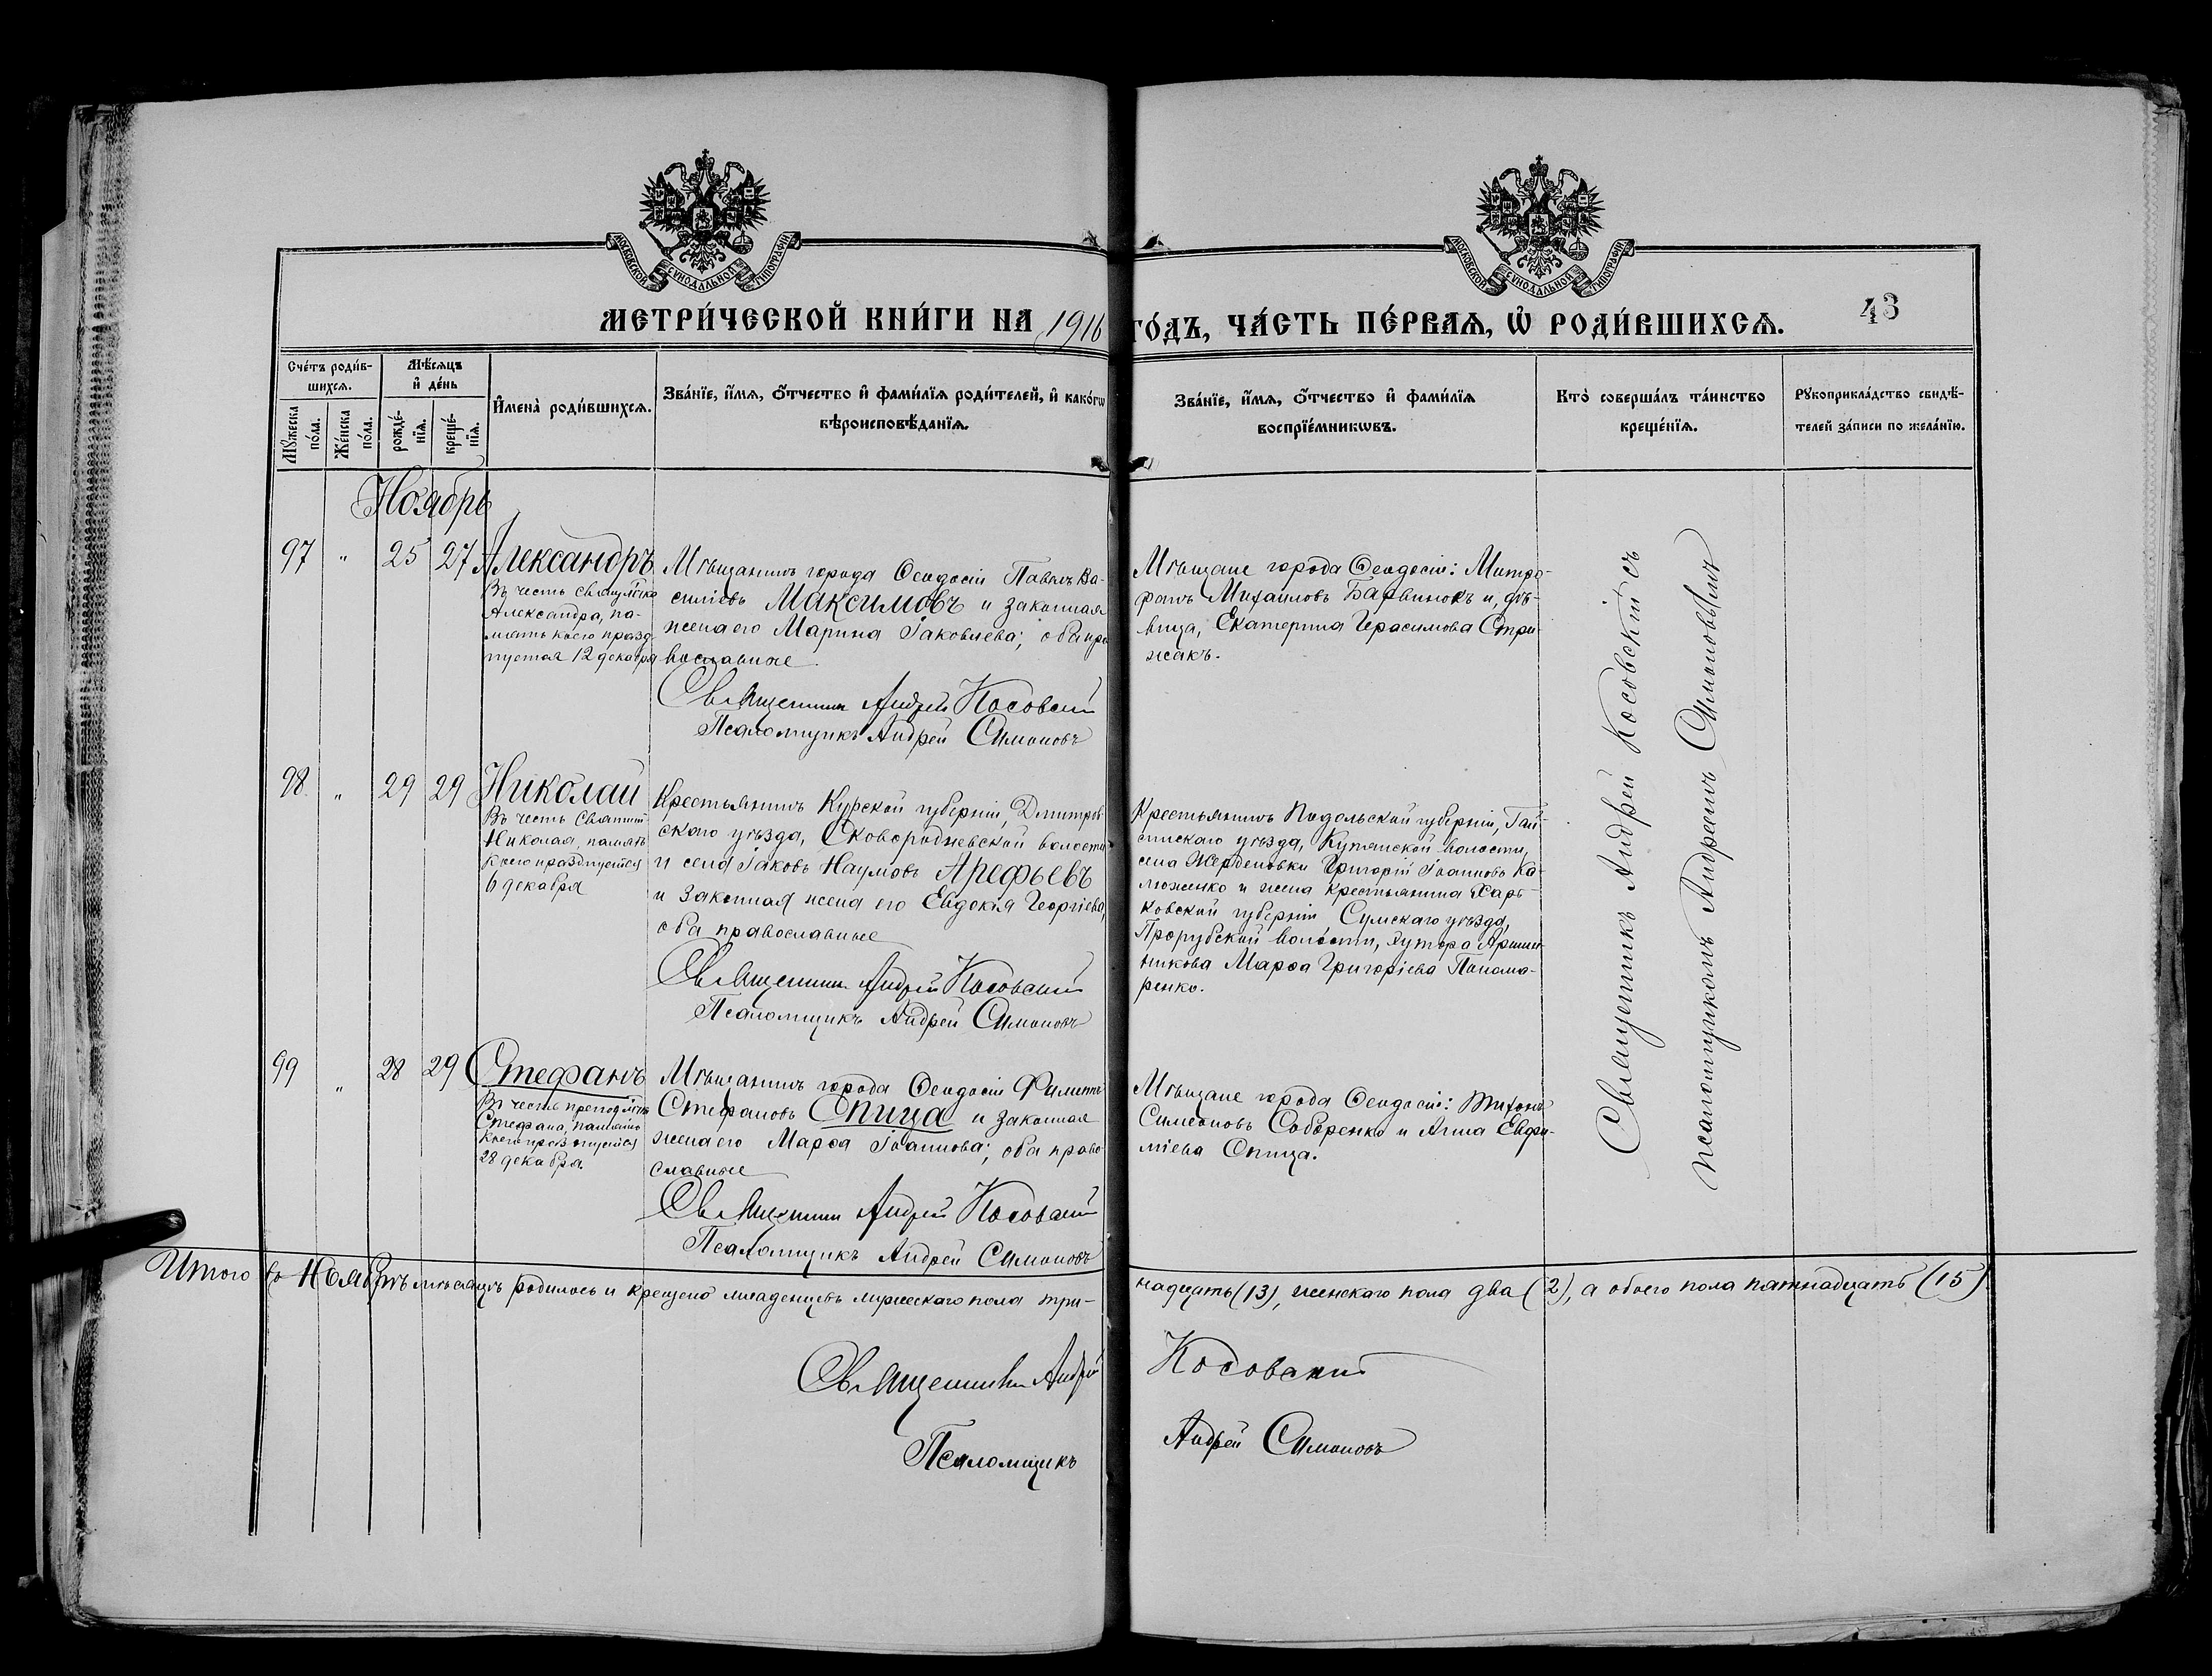 МОСКОВСКОЙ СѴНОДАЛЬНОЙ ТИПОГРАФІИ
МОСКОВСКОЙ СѴНОДАЛЬНОЙ ТИПОГРАФІИ
МЕТРИ́ЧЕСКОЙ КНИ́ГИ НА 1916 ГО́ДЪ, ЧА́СТЬ ПЕ́РВАЯ, Ѡ҆ РОДИ́ВШИХСѦ.
43
Сче́тъ роди́в-
шихсѧ.
Мꙋ́жеска
по́ла.
Же́нска
по́ла.
Мѣ́сѧцъ
и҆ де́нь
рожде́-
нїѧ.
креще́-
нїѧ.
И҆мена̀ роди́вшихсѧ.
Зва́нїе, и҆́мѧ, ѻ҆́тчество и҆ фами́лїѧ роди́телей, и҆ како́гѡ
вѣроисповѣ́данїѧ.
Зва́нїе, и҆́мѧ, ѻ҆́тчество и҆ фами́лїѧ
воспрїе́мникѡвъ.
Кто̀ соверша́лъ та́инство
креще́нїѧ.
Рꙋкоприкла́дство свидѣ́-
телей за́писи по жела́нїю.
Ноябрь
97 " 25 27 Александръ
Въ честь
Александра, па-
мять коего празд-
нуется 12 декабря
Мѣщанинъ города Ѳеодосіи Павелъ Ва-
силіевъ Максимовъ и законная
жена его Марина Іаковлева; оба пра-
вославные
Священникъ Андрей Косовскій
Псаломщикъ Андрей Симоновъ
Мѣщане города Ѳеодосіи: Митро-
фанъ Михаиловъ Барвинокъ и, дѣ-
вица, Екатерина Герасимова Стри-
жакъ.
98 " 29 29 Николай
Въ честь Святит.
Николая, память
коего празднуется
6 декабря
Крестьянинъ Курской губерніи, Дмитров-
скаго уѣзда, Сковородневской волости
и села Іаковъ Наумовъ Арефьевъ
и законная жена его Евдокія Георгіева,
оба православные
Священникъ Андрей Косовскій
Псаломщикъ Андрей Симоновъ
Крестьянинъ Подольской губерніи, Гай-
синскаго уѣзда, волости,
села Жерденовки Григорій Іоанновъ Ка-
люженко и жена крестьянина Харь-
ковской губерніи Сумскаго уѣзда,
Прорубской волости, хутора
Марѳа Григоріева Понома-
ренко.
99 " 28 29 Стефанъ
Въ честь преподобн.
Стефана, память
коего празднуется
28 декабря
Мѣщанинъ города Ѳеодосіи
Стефановъ Спица и законная
жена его Марѳа Іоаннова; оба право-
славные
Священникъ Андрей Косовскій
Псаломщикъ Андрей Симоновъ
Мѣщане города Ѳеодосіи: Тихонъ
Симеоновъ Соборенко и Анна Евфи-
міева Спица.
Священникъ Андрей Косовскій съ
псаломщикомъ Андреемъ Симоновымъ
Итого въ Ноябрѣ мѣсяцѣ родилось и крещено младенцевъ мужескаго пола три-
надцать (13), женскаго пола два (2), а обоего пола пятнадцать (15)
Священникъ Андрей Косовскій
Псаломщикъ Андрей Симоновъ